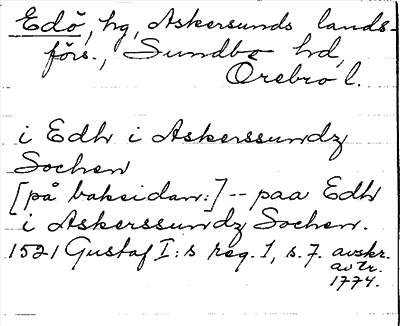 Edö, hg, Askersunds lands-
förs., Sundbo hd,
Örebro l.
i Edh i Askerssundz
Sochen
[på baksidan:] -- paa Edh
i Askerssundz Sochen.
1521 Gustaf I:s reg. 1, s. 7. avskr.
av tr.
1774.